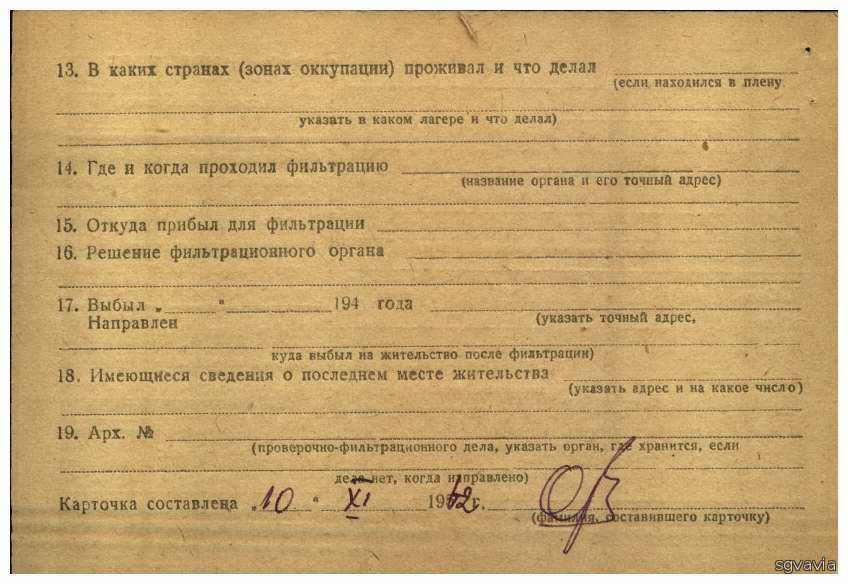 13. В каких странах (зонах оккупации) проживал и что делал
(если находился в плену
указать в каком лагере и что делал)
14. Где и когда проходил фильтрацию
(название органа и его точный адрес)
15. Откуда прибыл для фильтрации
16. Решение фильтрационного органа
17. Выбыл „ " 194 года
(указать точный адрес,
Направлен
куда выбыл на жительство после фильтрации)
18. Имеющиеся сведения о последнем месте жительства
(указать адрес и на какое число)
19. Арх. №
(проверочно-фильтрационного дела, указать орган, где хранится, если
дела нет, когда направлено)
Карточка составлена „10 " XI 1952 г.
(фамилия, составившего карточку)
sgvavia